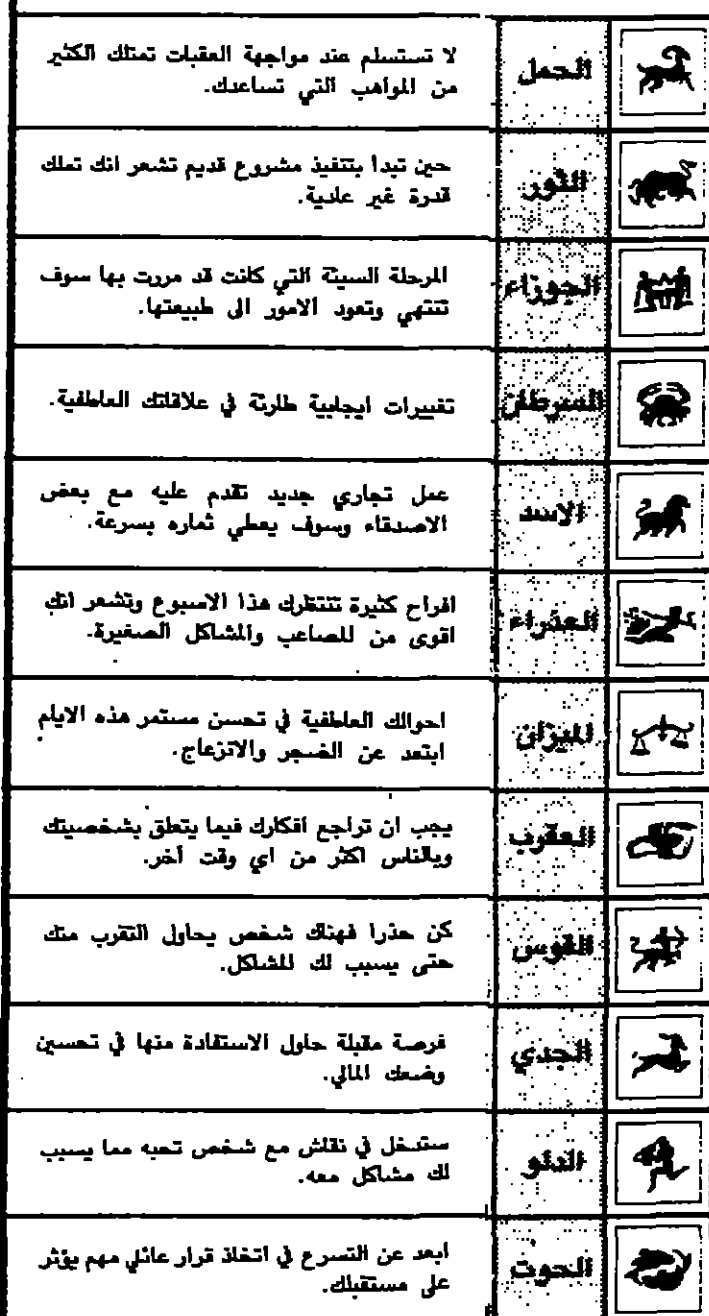 الحمل
لا تستسلم عند مواجهة العقبات تمتلك الكثير
من المواهب التي تساعدك.
الثور
حين تبدأ بتنفيذ مشروع قديم تشعر انك تملك
قدرة غير عادية.
الجوزاء
المرحلة السيئة التي كانت قد مررت بها سوف
تنتهي وتعود الامور الى طبيعتها.
السرطان
تغييرات ايجابية طارئة في علاقاتك العاطفية.
الاسد
عمل تجاري جديد تقدم عليه مع بعض
الاصدقاء وسوف يعطي ثماره بسرعة.
العذراء
افراح كثيرة تنتظرك هذا الاسبوع وتشعر انك
اقوى من المصاعب والمشاكل الصغيرة.
الميزان
احوالك العاطفية في تحسن مستمر هذه الايام
ابتعد عن الضجر والانزعاج.
العقرب
يجب ان تراجع أفكارك فيما يتعلق بشخصيتك
وبالناس اكثر من اي وقت آخر.
القوس
كن حذرا فهناك شخص يحاول التقرب منك
حتى يسبب لك المشاكل.
الجدي
فرصة مقبلة حاول الاستفادة منها في تحسين
وضعك المالي.
الدلو
ستدخل في نقاش مع شخص تحبه مما يسبب
لك مشاكل معه.
الحوت
ابعد عن التسرع في اتخاذ قرار عائلي مهم يؤثر
على مستقبلك.